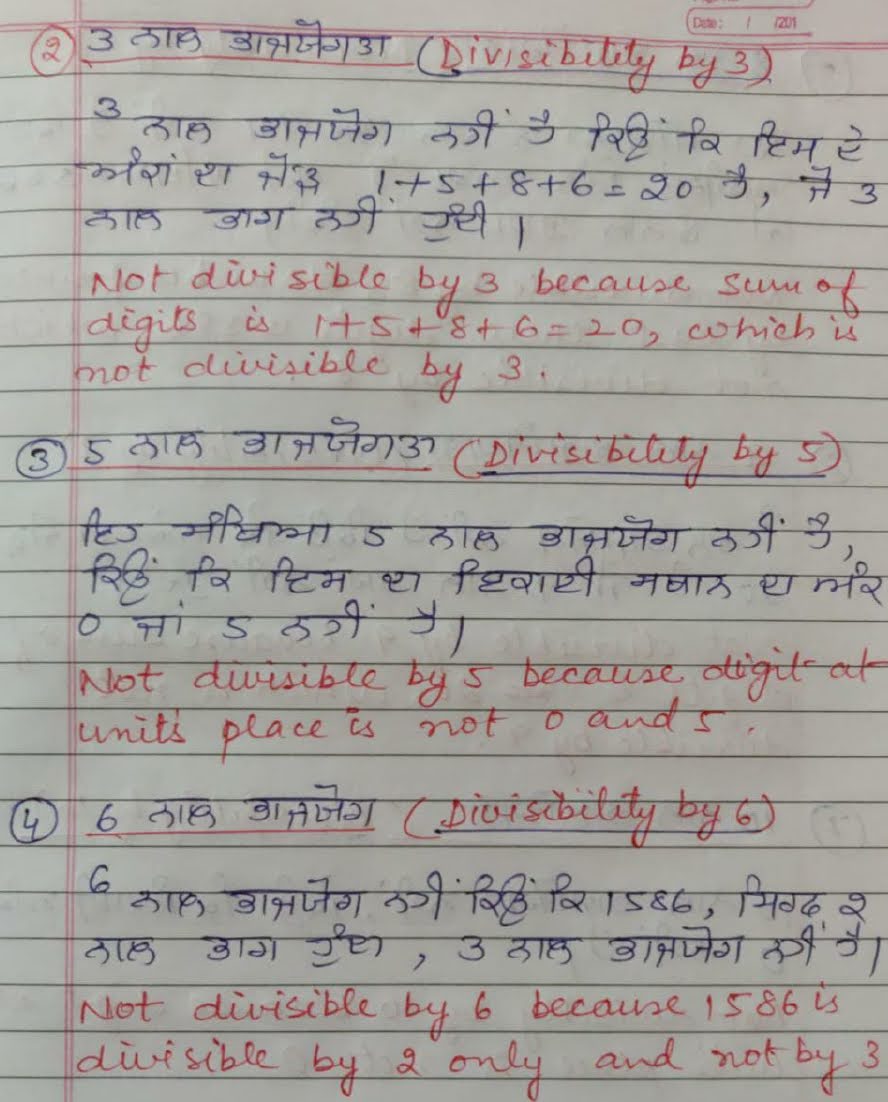 Date: / /201
② 3 ਨਾਲ ਭਾਜਯੋਗਤਾ (Divisibility by 3)
3 ਨਾਲ ਭਾਜਯੋਗ ਨਹੀਂ ਹੈ ਕਿਉਂ ਕਿ ਇਸ ਦੇ
ਅੰਕਾਂ ਦਾ ਜੋੜ 1+5+8+6=20 ਹੈ, ਜੋ 3
ਨਾਲ ਭਾਗ ਨਹੀਂ ਹੁੰਦੀ।
Not divisible by 3 because sum of
digits is 1+5+8+6=20, which is
not divisible by 3.
③ 5 ਨਾਲ ਭਾਜਯੋਗਤਾ (Divisibility by 5)
ਇਹ ਸੰਖਿਆ 5 ਨਾਲ ਭਾਜਯੋਗ ਨਹੀਂ ਹੈ,
ਕਿਉਂ ਕਿ ਇਸ ਦਾ ਇਕਾਈ ਸਥਾਨ ਦਾ ਅੰਕ
0 ਜਾਂ 5 ਨਹੀਂ ਹੈ।
Not divisible by 5 because digit at
unit's place is not 0 and 5.
④ 6 ਨਾਲ ਭਾਜਯੋਗ (Divisibility by 6)
6 ਨਾਲ ਭਾਜਯੋਗ ਨਹੀਂ ਕਿਉਂ ਕਿ 1586, ਸਿਰਫ 2
ਨਾਲ ਭਾਗ ਹੁੰਦਾ, 3 ਨਾਲ ਭਾਜਯੋਗ ਨਹੀਂ ਹੈ।
Not divisible by 6 because 1586 is
divisible by 2 only and not by 3